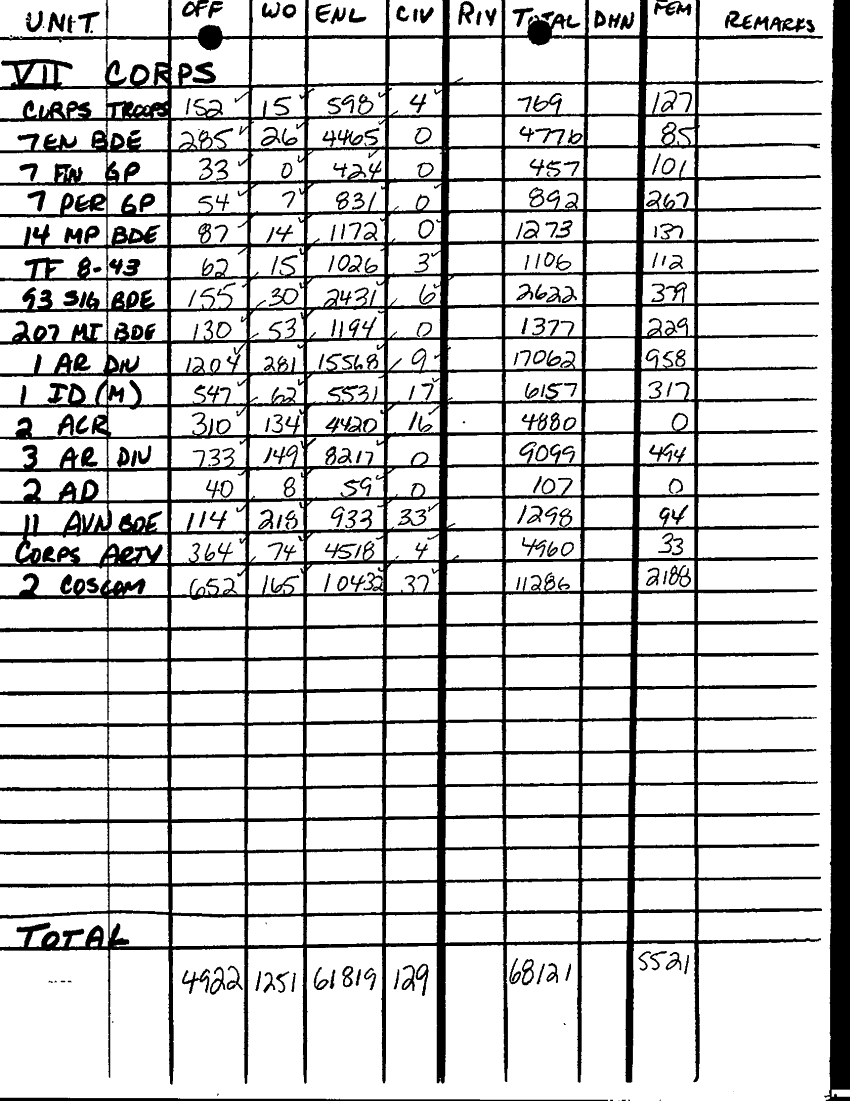 UNIT OFF WO ENL CIV RIV TOTAL DHN FEM REMARKS
VII CORPS
CORPS TROOPS 152 15 598 4 769 127
7 EN BDE 285 26 4465 0 4776 85
7 FIN GP 33 0 424 0 457 101
7 PER GP 54 7 831 0 892 267
14 MP BDE 87 14 1172 0 1273 137
TF 8-43 62 15 1026 3 1106 112
93 SIG BDE 155 30 2431 6 2622 379
207 MI BDE 130 53 1194 0 1377 229
1 AR DIV 1204 281 15568 9 17062 958
1 ID (M) 547 62 5531 17 6157 317
2 ACR 310 134 4420 16 4880 0
3 AR DIV 733 149 8217 0 9099 494
2 AD 40 8 59 0 107 0
11 AVN BDE 114 218 933 33 1298 94
CORPS ARTY 364 74 4518 4 4960 33
2 COSCOM 652 165 10432 37 11286 2188
TOTAL
4922 1251 61819 129 68121 5521